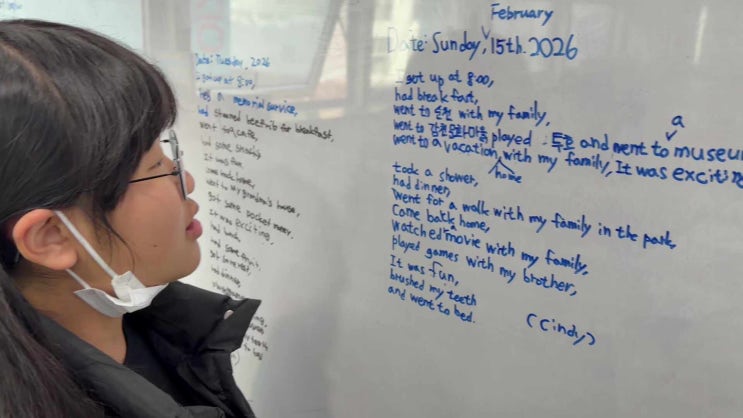 Date: Tuesday, 2026
I got up at 8:00,
had a memorial service,
had steamed beef rib for breakfast,
went to a cafe,
had some snacks
It was fun
came back home,
went to my grandma's house,
got some pocket money.
It was exciting.
had lunch
had some fruit.
had dinner
February
Date: Sunday, 15th. 2026
I got up at 8:00,
had breakfast,
went to 순천 with my family,
a
went to 감천문화마을 played : 투호 and went to museum
went to a vacation with my family, It was exciting
home
took a shower,
had dinner,
went for a walk with my family in the park,
Come back home,
a
watched movie with my family,
played games with my brother,
It was fun,
brushed my teeth
and went to bed.
(Cindy)